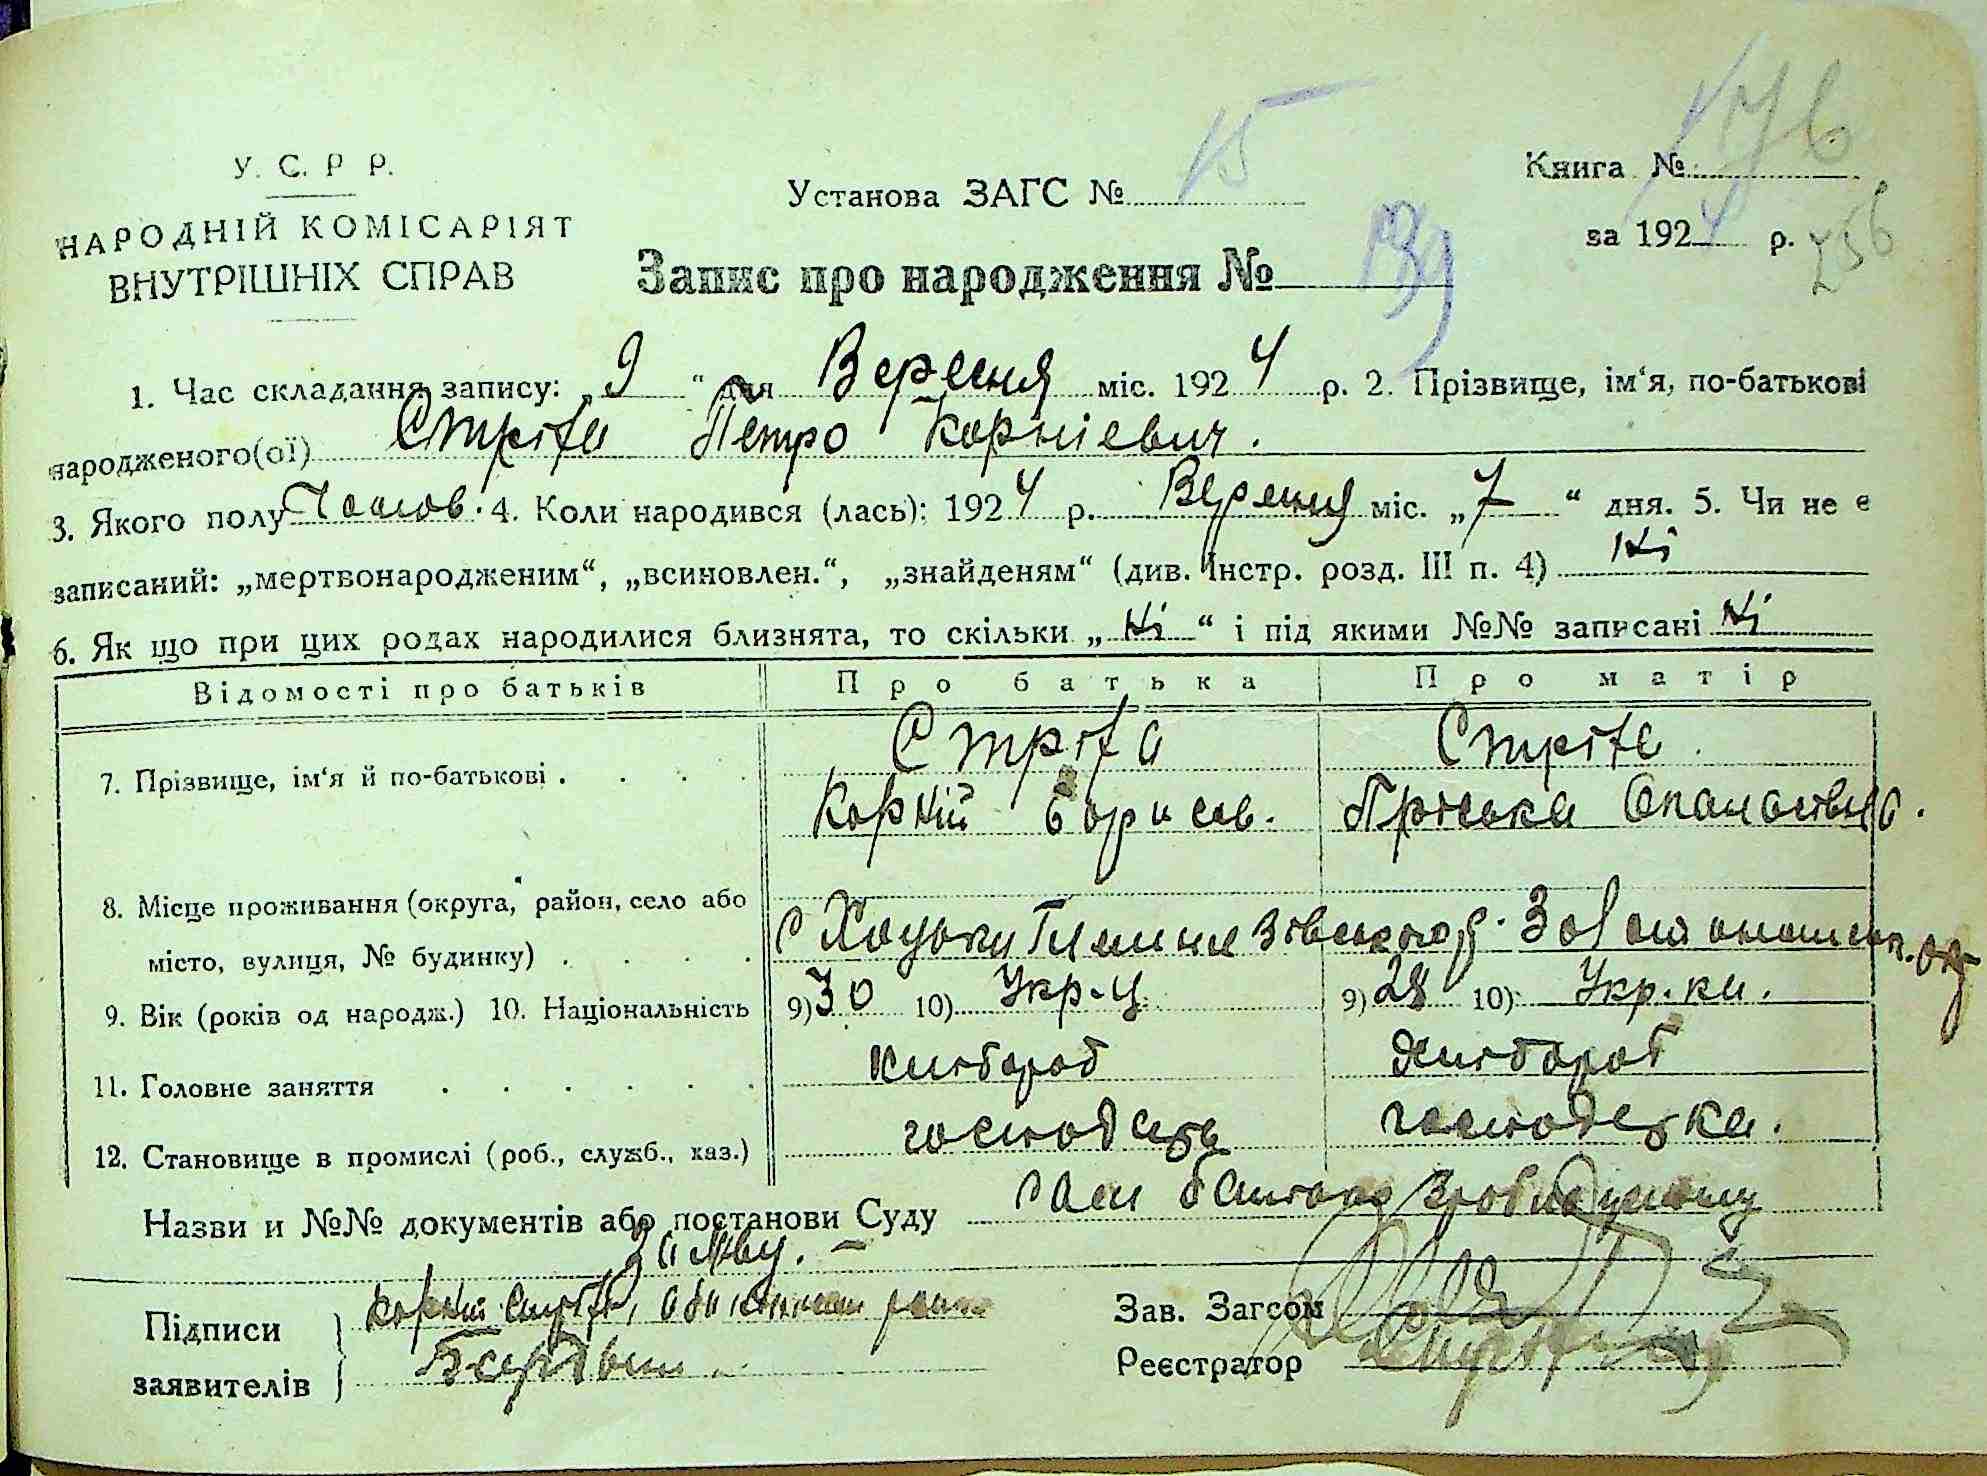 У. С. Р Р.
НАРОДНІЙ КОМІСАРІЯТ
ВНУТРІШНІХ СПРАВ
Установа ЗАГС № 15
Книга №
за 1924 р. 256
Запис про народження № 139
1. Час складання запису: „ 9 “ дня Вересня міс. 1924 р. 2. Прізвище, ім‘я, по-батькові
народженого(ої) Стріга Петро Корнієвич.
3. Якого полу Чолов. 4. Коли народився (лась): 1924 р. Вересня міс. „ 7 “ дня. 5. Чи не є
записаний: „мертвонародженим“, „всиновлен.“, „знайденям“ (див. Інстр. розд. III п. 4) Ні
6. Як що при цих родах народилися близнята, то скільки „ Ні “ і під якими №№ записані Ні
Відомості про батьків Про батька Про матір
7. Прізвище, ім‘я й по-батькові . . . . Стріга Стріга.
Корній Борисов. Пріська Опанасівна.
8. Місце проживання (округа, район, село або
місто, вулиця, № будинку) . . . . с Хоцьки Гельмязівського р. Золотоношськ. ок
9. Вік (років од народж.) 10. Національність 9) 30 10) Укр-ц 9) 28 10) Укр.ка.
11. Головне заняття . . . . . . Хлібороб Хлібороб
12. Становище в промислі (роб., служб., хаз.) господарь господарка.
Назви и №№ документів або постанови Суду Сам батько зробив усному
заяву. –
Підписи Корній Стріга,
заявителів
Зав. Загсом
Реєстратор